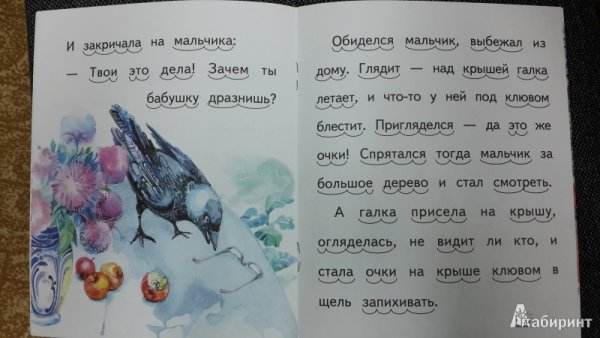 И закричала на мальчика:
— Твои это дела! Зачем ты
бабушку дразнишь?
Обиделся мальчик, выбежал из
дому. Глядит — над крышей галка
летает, и что-то у ней под клювом
блестит. Пригляделся — да это же
очки! Спрятался тогда мальчик за
большое дерево и стал смотреть.
А галка присела на крышу,
огляделась, не видит ли кто, и
стала очки на крыше клювом в
щель запихивать.
Лабиринт